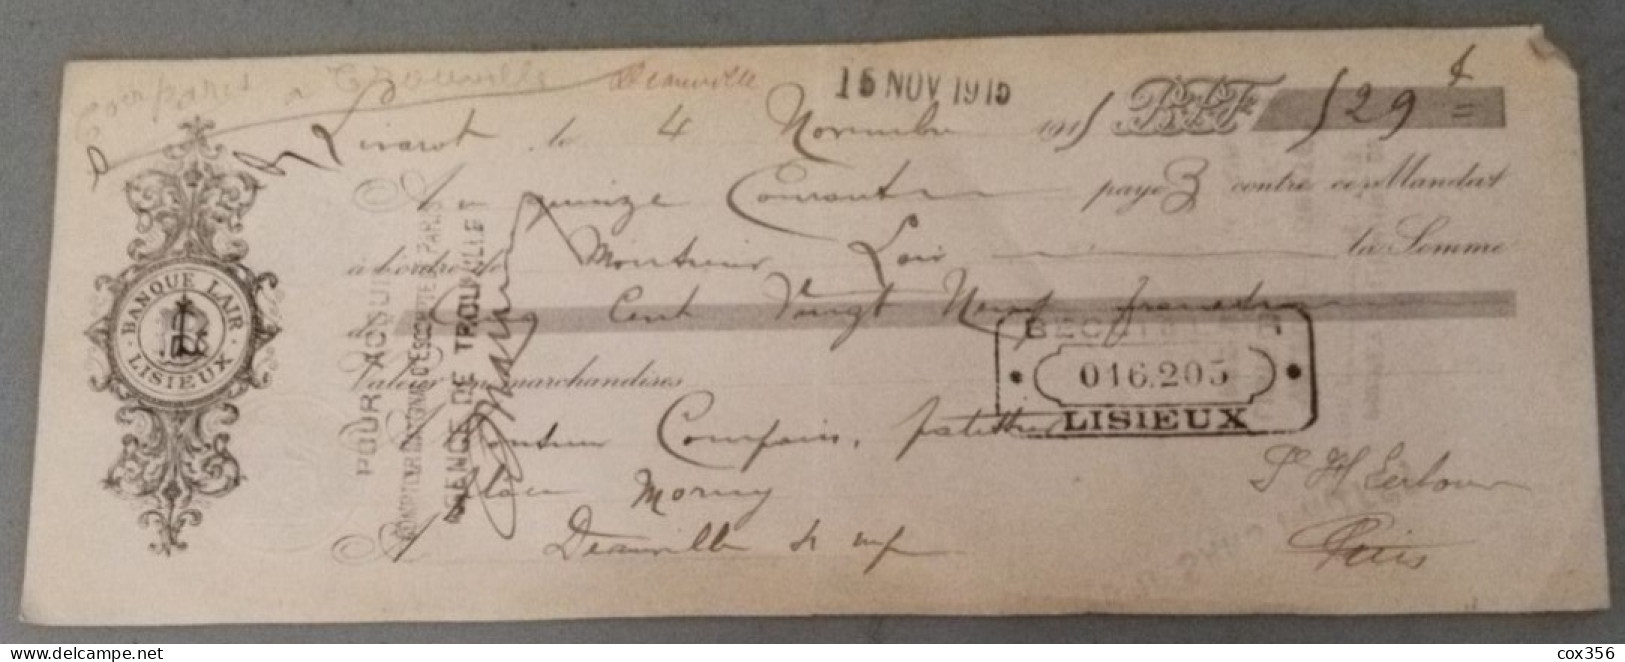 à Trouville Deauville
15 NOV 1915
Livarot, le 4 Novembre 1915 B.P.F. 129 f =
Au quinze Courant payez contre ce Mandat
à l'ordre de Monsieur Lair la Somme
de Cent Vingt Neuf francs
Valeur en marchandises
Monsieur Compain,
Place Morny
A Deauville s/ mer
BANQUE LAIR
LISIEUX
POUR ACQUIT
COMPTOIR NATIONAL D'ESCOMPTE DE PARIS
AGENCE DE TROUVILLE
016.205
LISIEUX
cox356